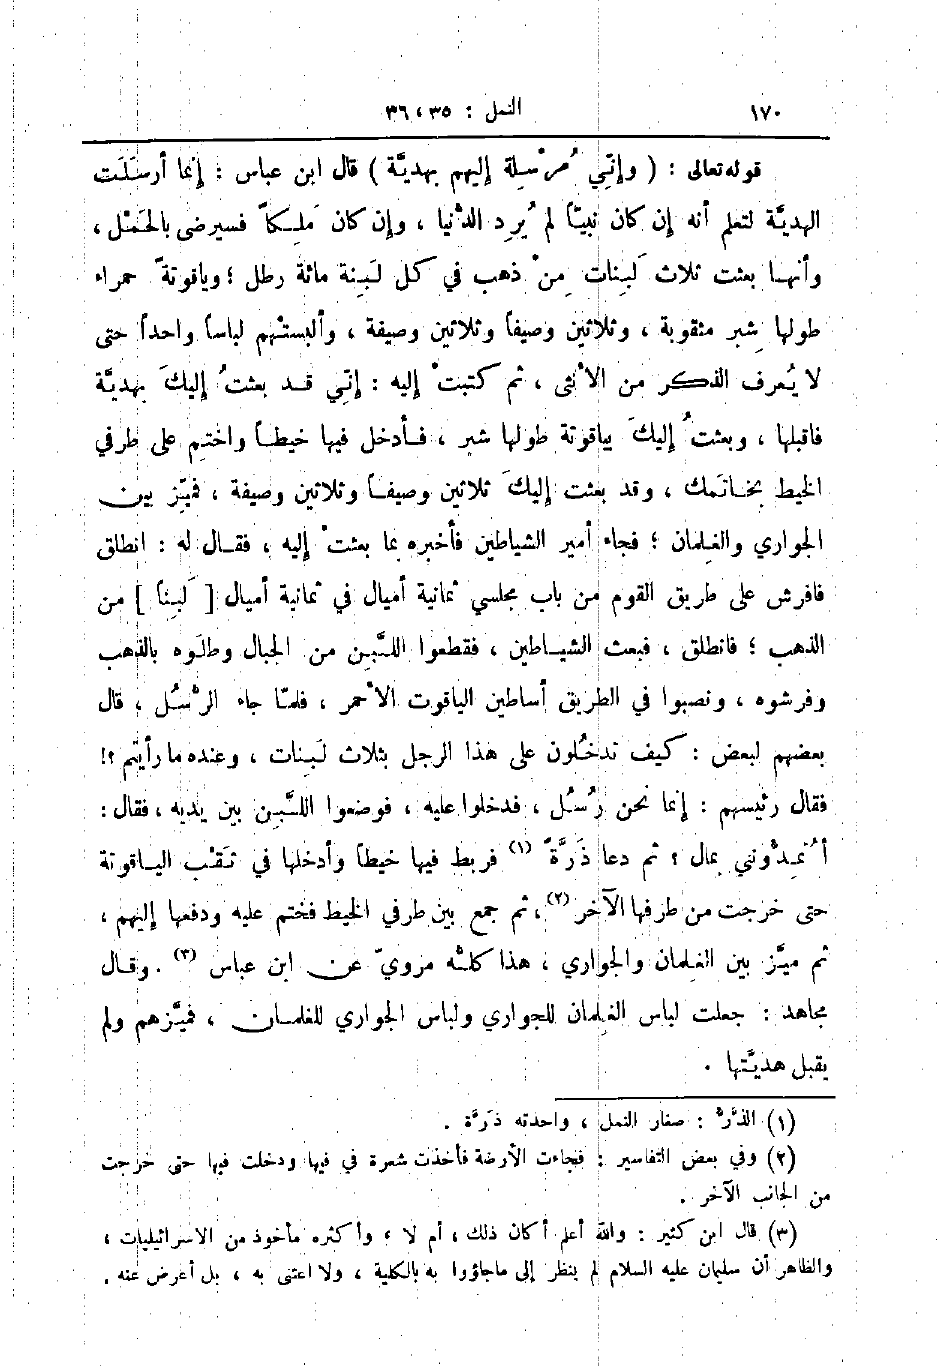 ١٧٠ النمل : ٣٥ ، ٣٦
قوله تعالى : ( وإنِّي مُرْسِلة إليهم بهديَّة ) قال ابن عباس : إنما أرسَلَت
الهديَّة لتعلم أنه إن كان نبيّاً لم يُرِد الدُّنيا ، وإن كان مَلِكاً فسيرضى بالحَمْل ،
وأنهـا بعثت ثلاث لَبِنات مِنْ ذهب في كل لَبِنة مائة رطل ؛ وياقوتةً حمراء
طولها شِبر مثقوبة ، وثلاثين وصيفاً وثلاثين وصيفة ، وألبستْهم لباساً واحداً حتى
لا يُعرف الذكر من الأُنثى ، ثم كتبتْ إليه : إنِّي قـد بعثتُ إليكَ بهديَّة
فاقبلها ، وبعثتُ إليكَ بياقوتة طولها شبر ، فـأدخل فيها خيطـاً واختم على طرفي
الخيط بخـاتَمك ، وقد بعثت إليكَ ثلاثين وصيفـاً وثلاثين وصيفة ، فميِّز بين
الجواري والغِلمان ؛ فجاء أمير الشياطين فأخبره بما بعثتْ إليه ، فقـال له : انطلق
فافرش على طريق القوم من باب مجلسي ثمانية أميال في ثمانية أميال [ لَبِناً ] من
الذهب ؛ فانطلق ، فبعث الشيـاطين ، فقطعوا اللَّبِـن من الجبال وطلَوه بالذهب
وفرشوه ، ونصبوا في الطريق أساطين الياقوت الأحمر ، فلمّا جاء الرُّسُل ، قال
بعضهم لبعض : كيف تدخُلون على هذا الرجل بثلاث لَبِنات ، وعنده ما رأيتم ؟!
فقال رئيسهم : إنما نحن رُسُل ، فدخلوا عليه ، فوضعوا اللَّبِـن بين يديه ، فقال :
أتُمِدُّونني بمال ؟ ثم دعا ذَرَّةً (١) فربط فيها خيطاً وأدخلها في ثَقْب اليـاقوتة
حتى خرجت من طرفها الآخر (٢) ، ثم جمع بين طرفي الخيط فختم عليه ودفعها إليهم ،
ثم ميَّز بين الغلمان والجواري ، هذا كلُّه مرويّ عن ابن عباس (٣) . وقـال
مجاهد : جعلت لباس الغِلمان للجواري ولباس الجواري للغلمـان ، فميَّزهم ولم
يقبل هديَّتها .
(١) الذَّرُّ : صغار النمل ، واحدته ذَرَّة .
(٢) وفي بعض التفاسير : فجاءت الأرضة فأخذت شعرة في فيها ودخلت فيها حتى خرجت
من الجانب الآخر .
(٣) قال ابن كثير : والله أعلم أكان ذلك ، أم لا ، وأكثره مأخوذ من الاسرائيليات ،
والظاهر أن سليمان عليه السلام لم ينظر إلى ماجاؤوا به بالكلية ، ولا اعتنى به ، بل أعرض عنه .